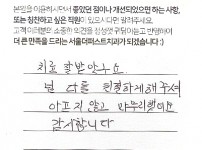 본원을 이용하시면서 좋았던 점이나 개선되었으면 하는 사항,
또는 칭찬하고 싶은 직원이 있으시면 알려주세요.
고객 여러분의 소중한 의견을 귀담아듣고 반영하여
더 큰 만족을 드리는 서울더퍼스트치과가 되겠습니다 :)
치료 잘 받았구요
넘 다들 친절하게 해주셔
아프지 않고 마무리했어요
감사합니다